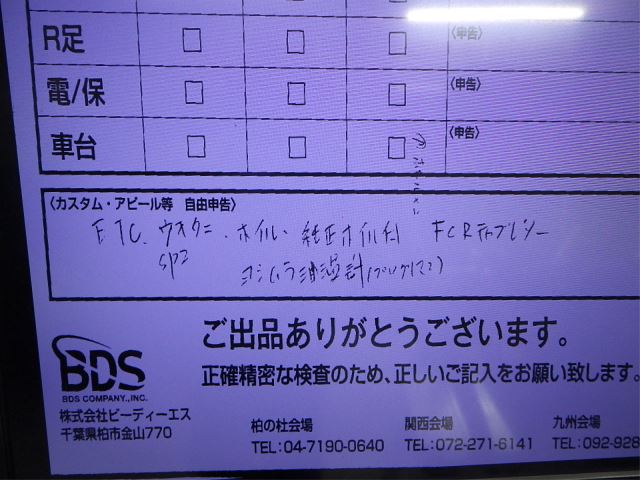 R足 □ □ □ 〈申告〉
電/保 □ □ □ 〈申告〉
車台 □ □ □ 〈申告〉
〈カスタム・アピール等 自由申告〉
ETC. ウオタニ ・ホイル 純正ホイル付 FCRキャブレター
SP2
ヨシムラ油温計
ご出品ありがとうございます。
正確精密な検査のため、正しいご記入をお願い致します。
BDS
BDS COMPANY.,INC.
株式会社ビーディーエス
千葉県柏市金山770
柏の杜会場
TEL:04-7190-0640
関西会場
TEL:072-271-6141
九州会場
TEL:092-928